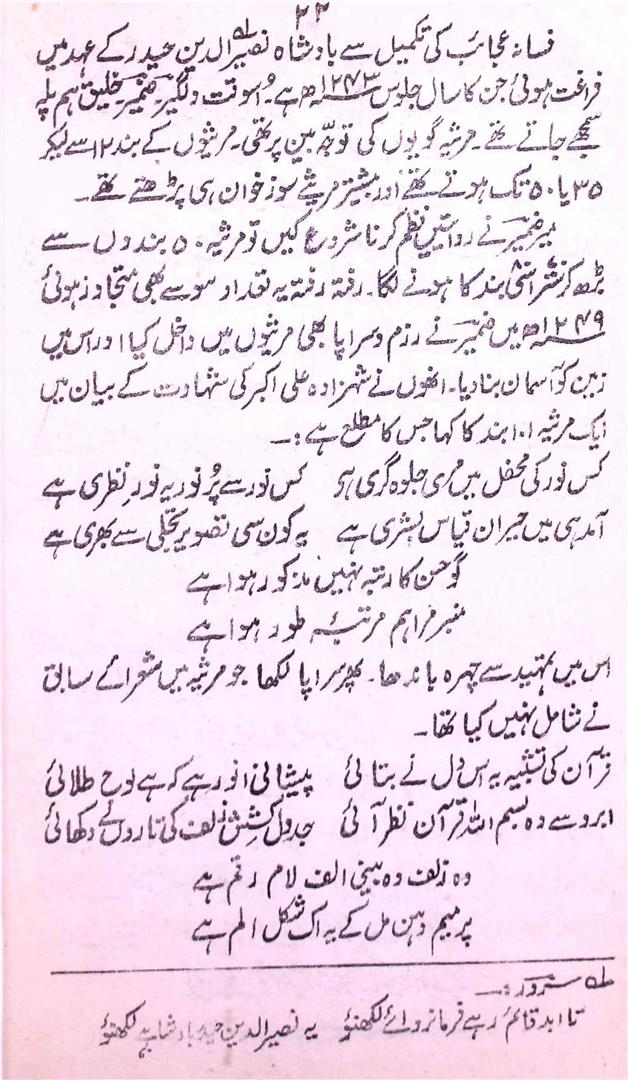 ۲۲
فسانۂ عجائب کی تکمیل سے بادشاہ نصیر الدین حیدر کے عہد میں
فراغت ہوئی جن کا سال جلوس ۱۲۴۳ھ ہے۔ اُسوقت دلگیر۔ ضمیر۔ خلیق ہم پلہ
سمجھے جاتے تھے۔ مرثیہ گویوں کی توجّہ بین پر تھی۔ مرثیوں کے بند ۱۲ سے لیکر
۳۵ یا ۵۰ تک ہوتے تھے اور بیشتر مرثیے سوز خوان ہی پڑھتے تھے۔
میر ضمیر نے روائتیں نظم کرنا شروع کیں تو مرثیہ ۵۰ بندوں سے
بڑھ کر ستّر اسّی بند کا ہونے لگا۔ رفتہ رفتہ یہ تعداد سو سے بھی متجاوز ہوئی
۱۲۴۹ھ میں ضمیر نے رزم و سراپا بھی مرثیوں میں داخل کیا اور اس میں
زمین کو آسمان بنا دیا۔ انھوں نے شہزادہ علی اکبر کی شہادت کے بیان میں
ایک مرثیہ ۱۰۱ بند کا کہا جس کا مطلع ہے :۔
کس نور کی محفل میں مری جلوہ گری ہی کس نور سے پُر نور یہ نورِ نظری ہے
آمد ہی میں حیران قیاس بشری ہے یہ کون سی تصویر تجلّی سے بھری ہے
گو حسن کا رتبہ نہیں مذکور ہوا ہے
منبر مرا ہم مرتبۂ طور ہوا ہے
اس میں تمہید سے چہرہ باندھا۔ پھر سراپا لکھا جو مرثیہ میں شعرائے سابق
نے شامل نہیں کیا تھا۔
قرآن کی تشبیہ یہ اس دل نے بتائی پیشانی انور ہے کہ ہے لوح طلائی
ابرو سے وہ بسم اللہ قرآن نظر آئی جدول کشش زلف کی تاروں نے دکھائی
وہ زلف وہ بینی الف لام رقم ہے
پر میم دہن مل کے یہ اک شکل الم ہے
سرور :۔
تا ابد قائم رہے فرمانروائے لکھنؤ یہ نصیر الدین حیدر بادشاہے لکھنؤ